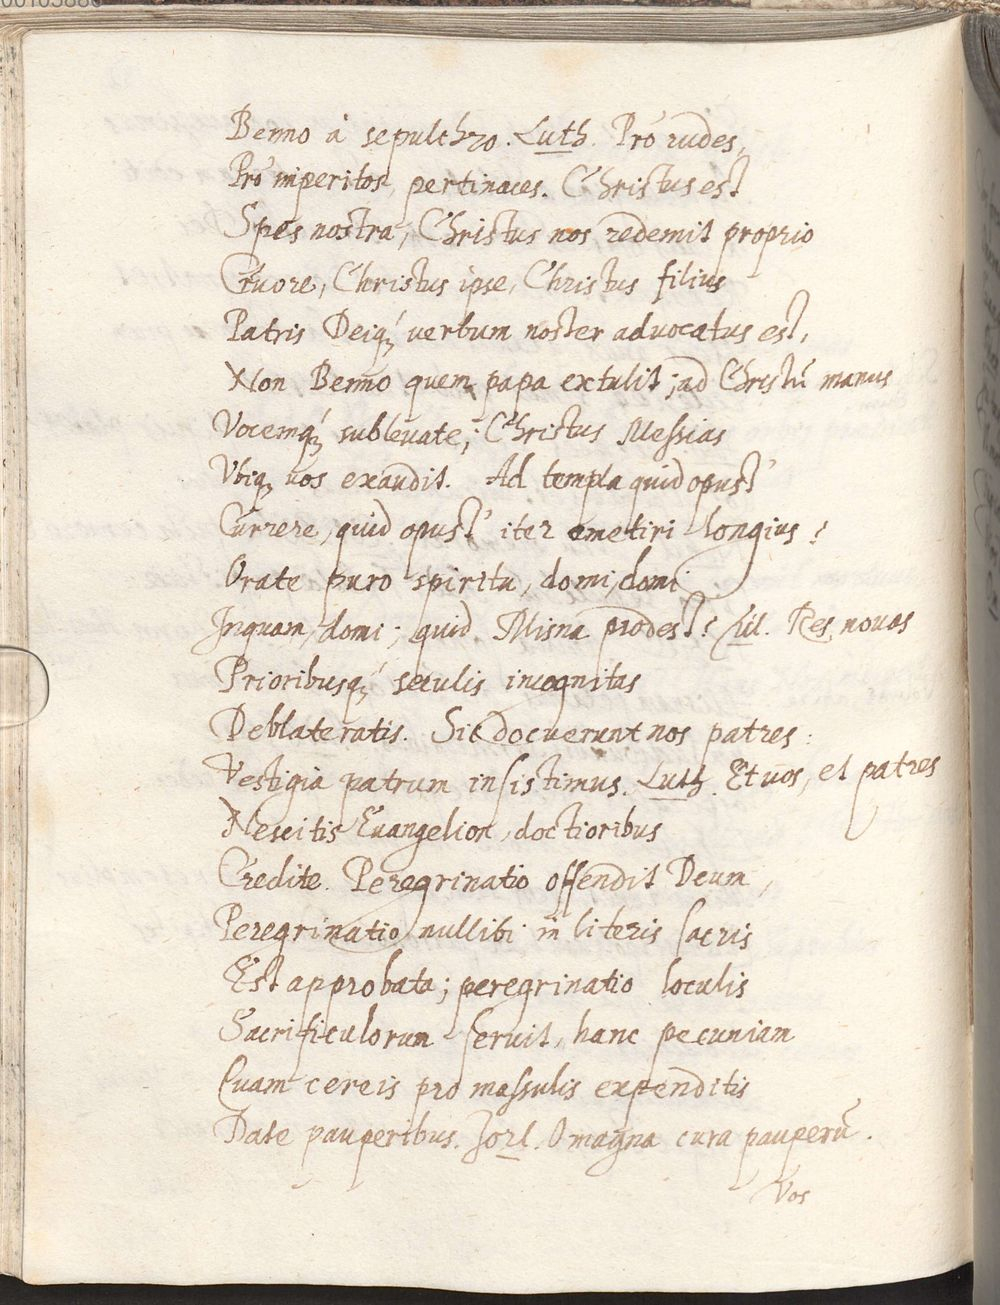 Benno à sepulchro. Luth. Pro rudes,
Pro imperitos, pertinaces. Christus est
Spes nostra, Christus nos redemit proprio
Cruore, Christus ipse, Christus filius
Patris Deiq́ verbum noster advocatus est,
Non Benno quem papa extulit; ad Christū manus
Vocemq́ sublevate, Christus Messias
Vbiq vos exaudit. Ad templa quid opust
Currere, quid opust iter emetiri longius?
Orate puro spiritu, domi, domi
Inquam, domi; quid Misna prodest? Lil. Res novas
Prioribusq́ seculis incognitas
Deblateratis. Sic docuerunt nos patres:
Vestigia patrum insistimus. Luth. Et vos, et patres
Nescitis Euangelion, doctioribus
Credite. Peregrinatio offendit Deum,
Peregrinatio nullibi in literis sacris
Est approbata; peregrinatio loculis
Sacrificulorum servit, hanc pecuniam
Quam cereis pro massulis expenditis
Date pauperibus. Jorl. O magna cura pauperū.
Vos